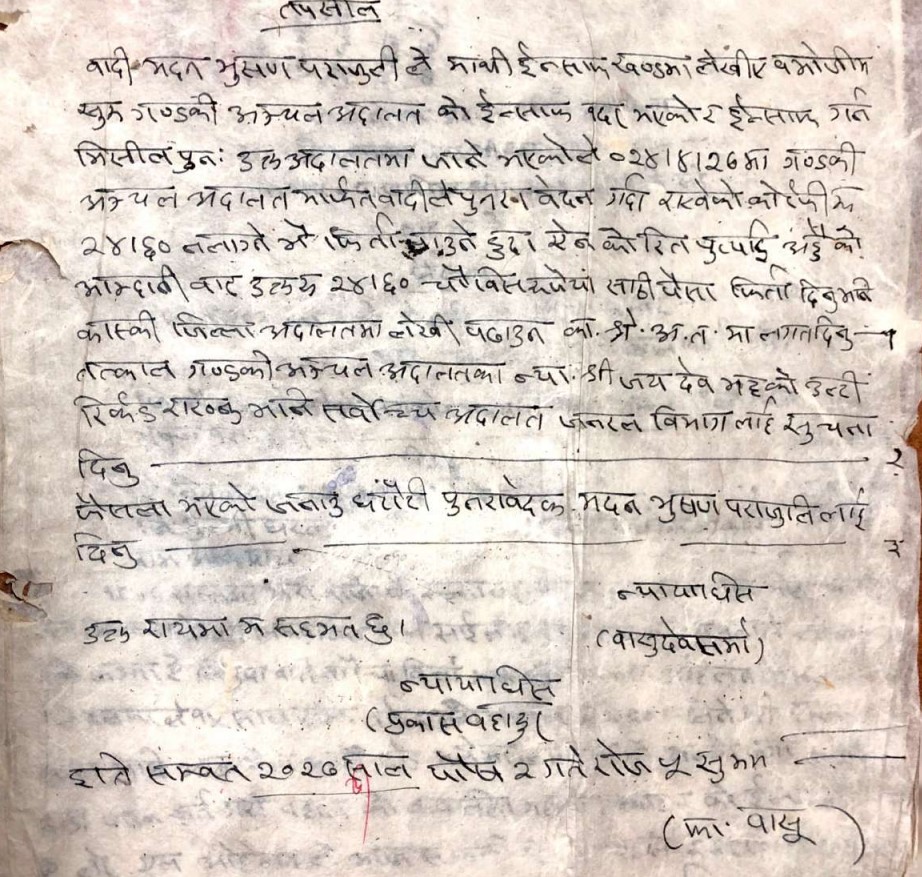 तपसील
वादी मदन भुसण पराजुली ले माथी ईन्साफ खण्डमा लेखीए बमोजीम
सुरु गण्डकी अञ्चल अदालत को ईन्साफ बदर भएको र ईन्साफ गर्न
मिसील पुनः उक्त अदालतमा जाने भएकोले ०२४।४।२७मा गण्डकी
अञ्चल अदालत मार्फत वादीले पुनरा वेदन गर्दा राखेको कोर्टफी रू
२४।६० नलाग्ने भै फिर्ता पाउने हुदा ऐन को रित पुर्‍याई अड्डै को
आम्दानी बाट उक्त रू २४।६० चौविस रूपैयां साठी पैसा फिर्ता दिनु भनि
कास्की जिल्ला अदालतमा लेखी पठाउन का. श्रे. अ. त. मा लगत दिनु — १
तत्काल गण्डकी अञ्चल अदालतका न्या. श्री जय देव भट्टको उल्टी
रिर्कड राख्नु भनि सर्वोच्च अदालत जनरल विभाग लाई सुचना
दिनु — २
फैसला भएको जनाउ धरौटी पुनरावेदक मदन भुषण पराजुलि लाई
दिनु — ३
न्यायाधिस
उक्त रायमा म सहमत छु।
(वासुदेव सर्मा)
न्यायाधिस
(प्रकास वहादुर
ईति सम्वत २०२७ साल पौष २ गते रोज ५ सुभम
(फा. वासू)